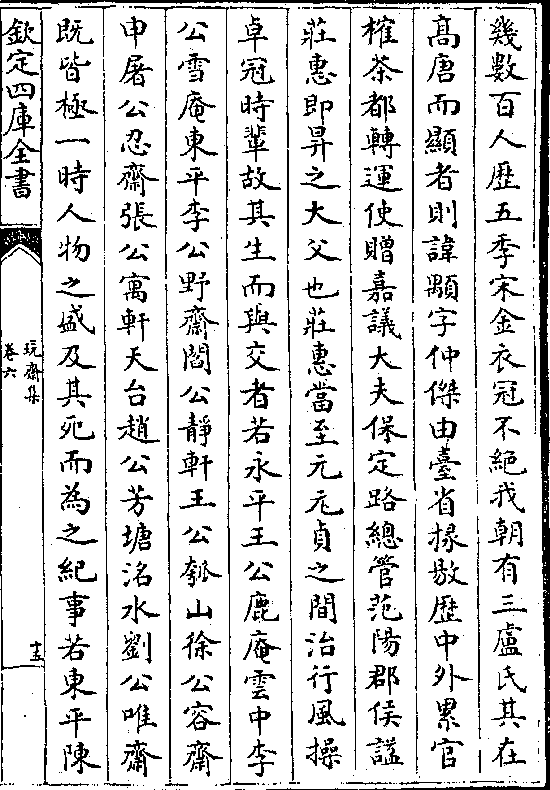 幾數百人歴五季宋金衣冠不絕我朝有三盧氏其在
髙唐而顯者則諱顒字仲傑由臺省掾敭歴中外累官
榷茶都轉運使贈嘉議大夫保定路總管范陽郡侯諡
莊惠即昇之大父也莊惠當至元元貞之間治行風操
卓冠時輩故其生而與交者若永平王公鹿庵雲中李
公雪庵東平李公野齋閻公靜軒王公瓠山徐公容齋
申屠公忍齋張公寓軒天台趙公芳塘洺水劉公唯齋
既皆極一時人物之盛及其死而為之紀事若東平陳
欽定四庫全書
玩齋集
卷六
十五